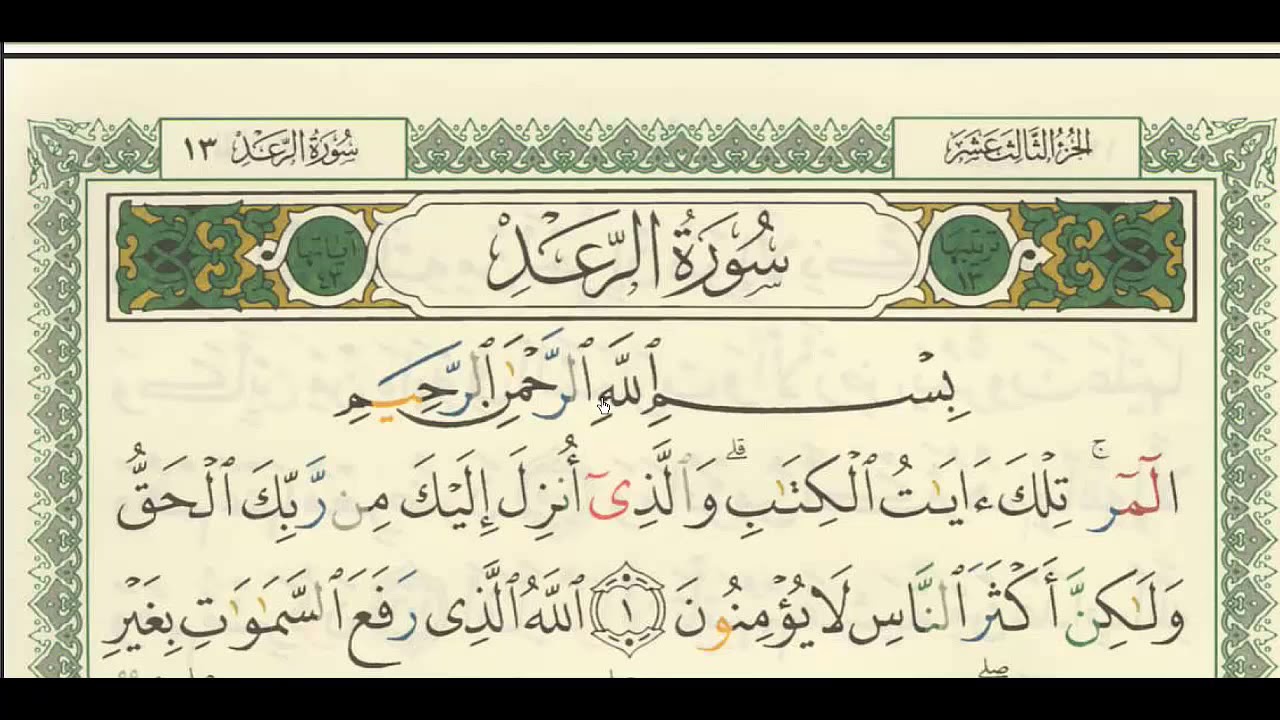 الجزء الثالث عشر
سورة الرعد ١٣
ترتيبها ١٣
سُورَةُ الرَّعْدِ
آياتها ٤٣
بِسْمِ ٱللَّهِ ٱلرَّحْمَٰنِ ٱلرَّحِيمِ
الٓمٓر ۚ تِلْكَ ءَايَٰتُ ٱلْكِتَٰبِ ۗ وَٱلَّذِىٓ أُنزِلَ إِلَيْكَ مِن رَّبِّكَ ٱلْحَقُّ
وَلَٰكِنَّ أَكْثَرَ ٱلنَّاسِ لَا يُؤْمِنُونَ ١ ٱللَّهُ ٱلَّذِى رَفَعَ ٱلسَّمَٰوَٰتِ بِغَيْرِ